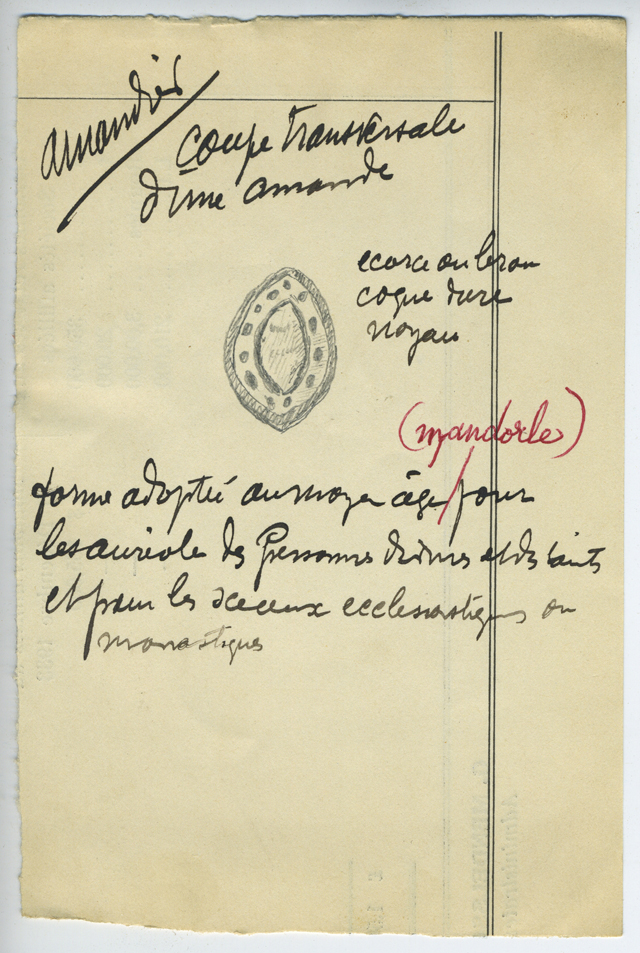 amandier
Coupe transversale
d'une amande
ecorce ou brou
coque dure
noyau
(mandorle)
forme adopté au moyen âge / pour
les auréole des Personnes divines et des saints
et pour les sceaux ecclesiastiques ou
monastiques